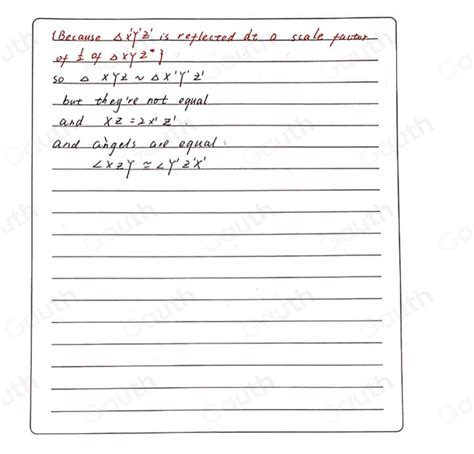 {Because △X'Y'Z' is reflected at a scale factor
of 1/2 of △XYZ"}
so △ XYZ ~ △X'Y'Z'
but they're not equal
and XZ = 2X'Z'.
and angels are equal:
∠XZY ≅ ∠Y'Z'X'
Gauth